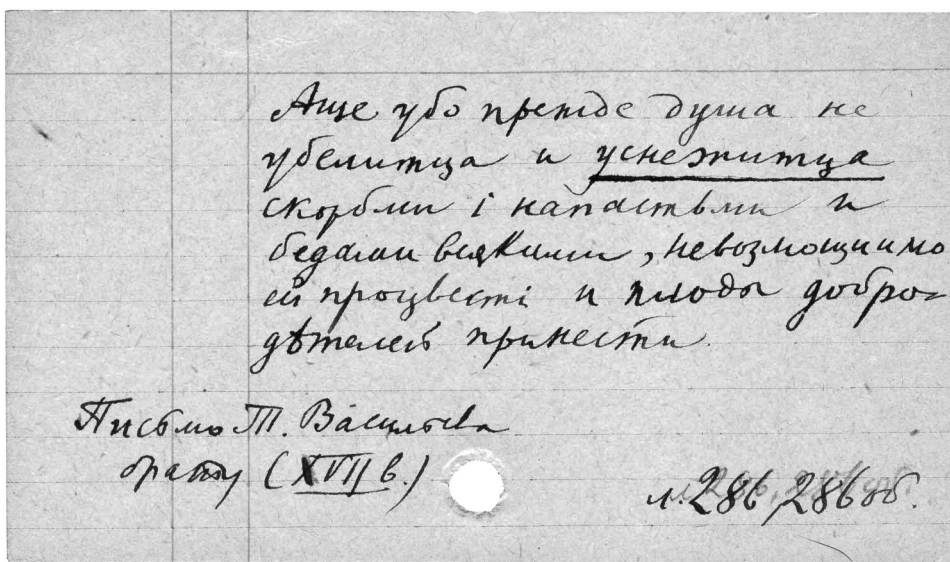 Аще убо прежде душа не
убелитца и уснежитца
скорбми і напастьми и
бедами всякими, невозмощиимо
ей процвесті и плоды добро-
дѣтелей принести.
Письмо Т. Васильева
брату (XVII в.)
л. 286, 286 об.